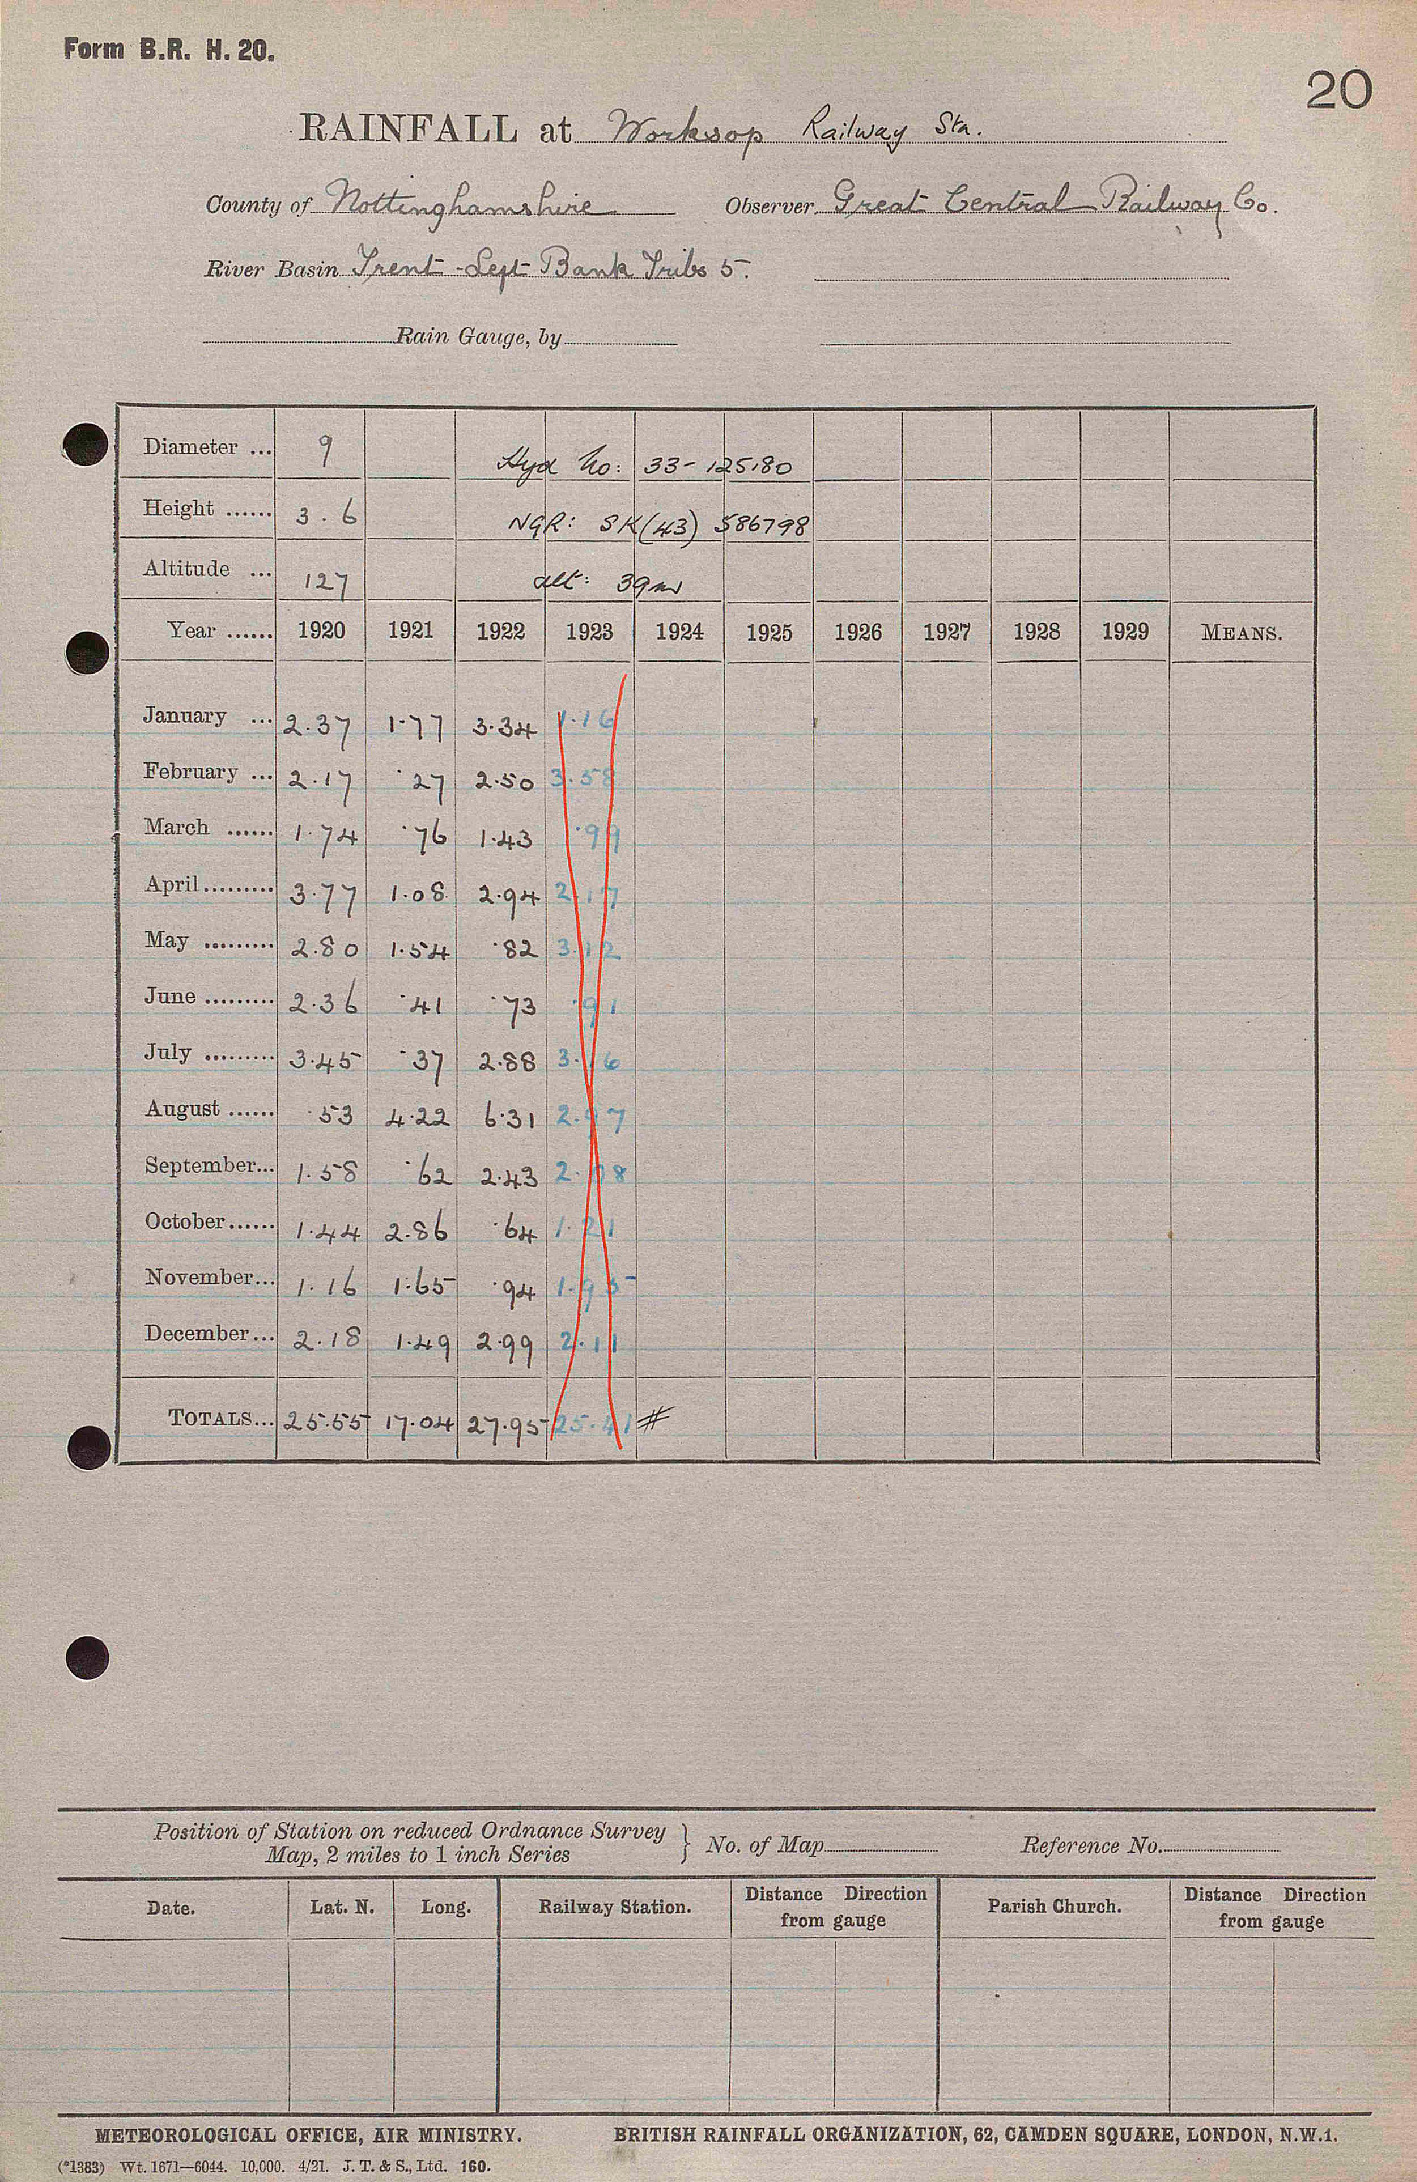 Form B.R. H. 20.
20
RAINFALL at Worksop Railway Sta.
County of Nottinghamshire Observer Great Central Railway Co.
River Basin Trent - Left Bank Tribs 5.
Rain Gauge, by
Diameter ... 9 Hyd No: 33-125180
Height ...... 3.6 NGR: SK(43) 586798
Altitude ... 127 alt: 39m
Year ...... 1920 1921 1922 1923 1924 1925 1926 1927 1928 1929 MEANS.
January ... 2.37 1.77 3.34 1.16
February ... 2.17 .27 2.50 3.58
March ...... 1.74 .76 1.43 .99
April ......... 3.77 1.08 2.94 2.17
May ......... 2.80 1.54 .82 3.12
June ......... 2.36 .41 .73 .91
July ......... 3.45 .37 2.88 3.16
August ...... .53 4.22 6.31 2.97
September... 1.58 .62 2.43 2.08
October...... 1.44 2.86 .64 1.21
November... 1.16 1.65 .94 1.95
December... 2.18 1.49 2.99 2.11
TOTALS... 25.55 17.04 27.95 25.41 #
Position of Station on reduced Ordnance Survey
Map, 2 miles to 1 inch Series } No. of Map Reference No.
Date. Lat. N. Long. Railway Station. Distance Direction from gauge Parish Church. Distance Direction from gauge
METEOROLOGICAL OFFICE, AIR MINISTRY. BRITISH RAINFALL ORGANIZATION, 62, CAMDEN SQUARE, LONDON, N.W.1.
(*1383) Wt. 1671—6044. 10,000. 4/21. J. T. & S., Ltd. 160.